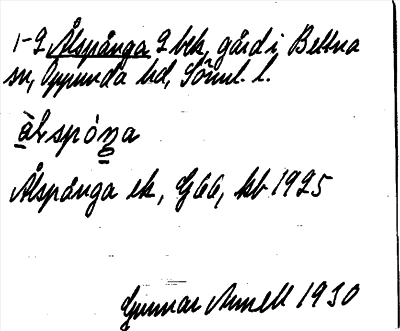 1-2 Ålspånga 2 bek, gård i Bettna
sn, Oppunda hd, Söml. l.
àlspóŋa
Ålspånga ek, G66, kb 1925
Gunnar Arnell 1930